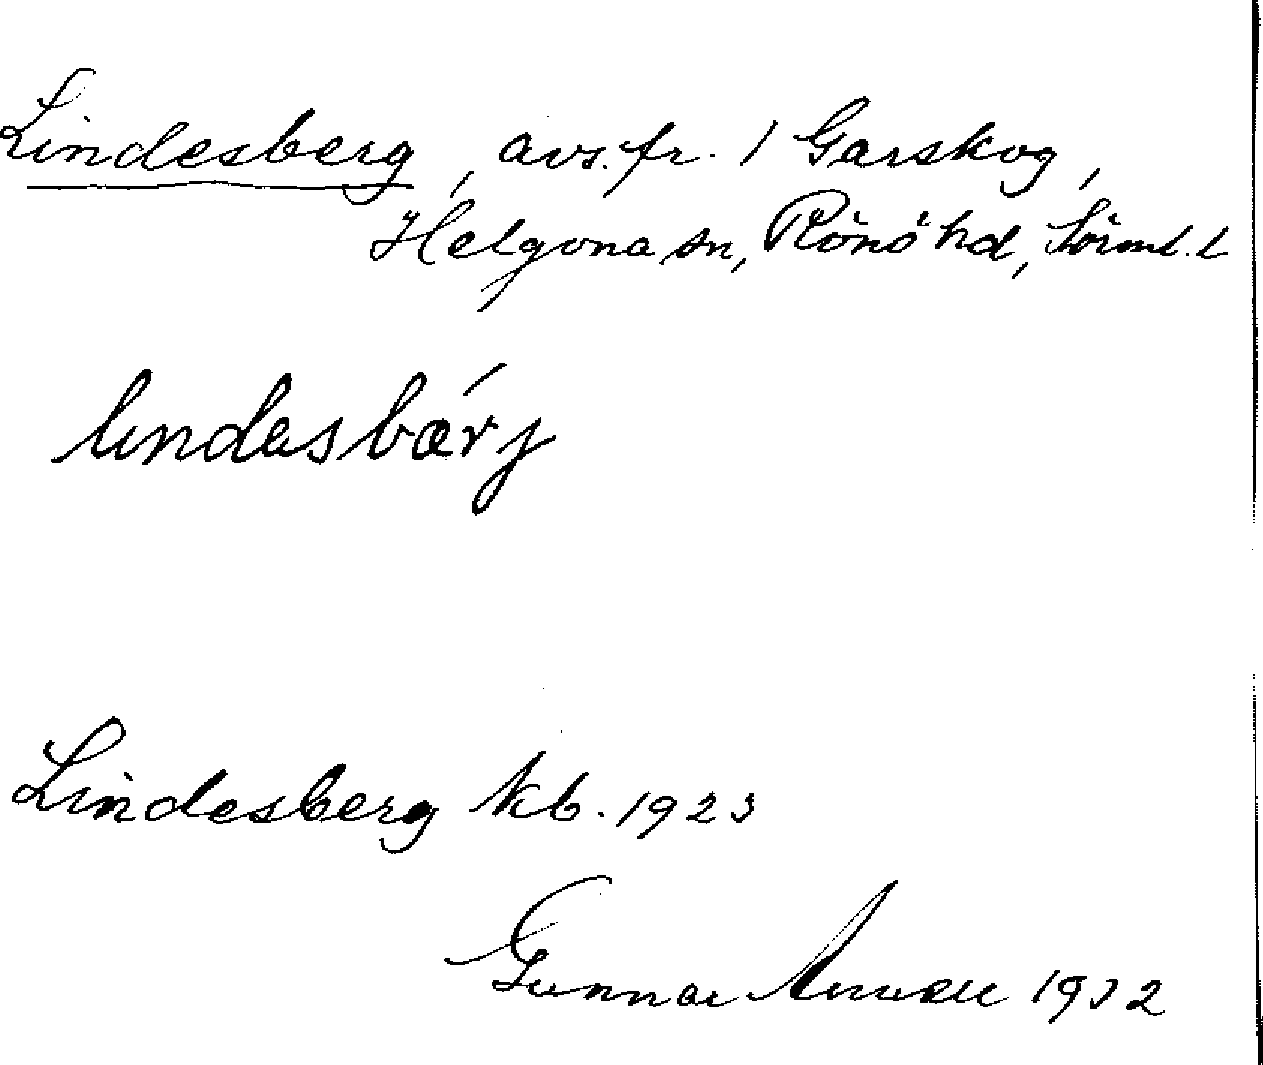 Lindesberg, avs. fr. 1 Garskog,
Helgona sn, Rönö hd, Sörml. l
lindasbǽrj
Lindesberg kb. 1923
Gunnar 1932